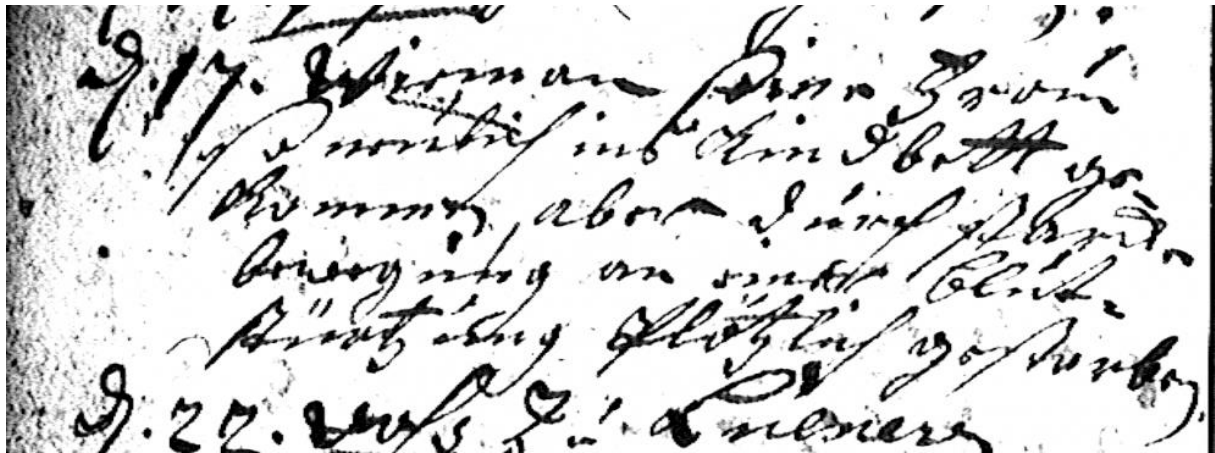 d. 17. Wieman seine Frau
so neulich ins Kindbett ge-
kommen, aber durch starcke
bewegung an einer Blut-
stürtzung plötzlich gestorben.
d. 22. Voß zu